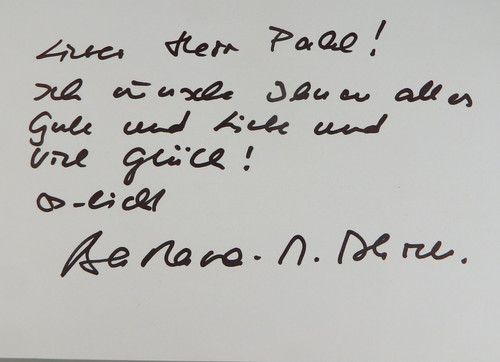 Lieber Herr Pahl!
Ich wünsche Ihnen alles
Gute und Liebe und
viel Glück!
Barbara. M.